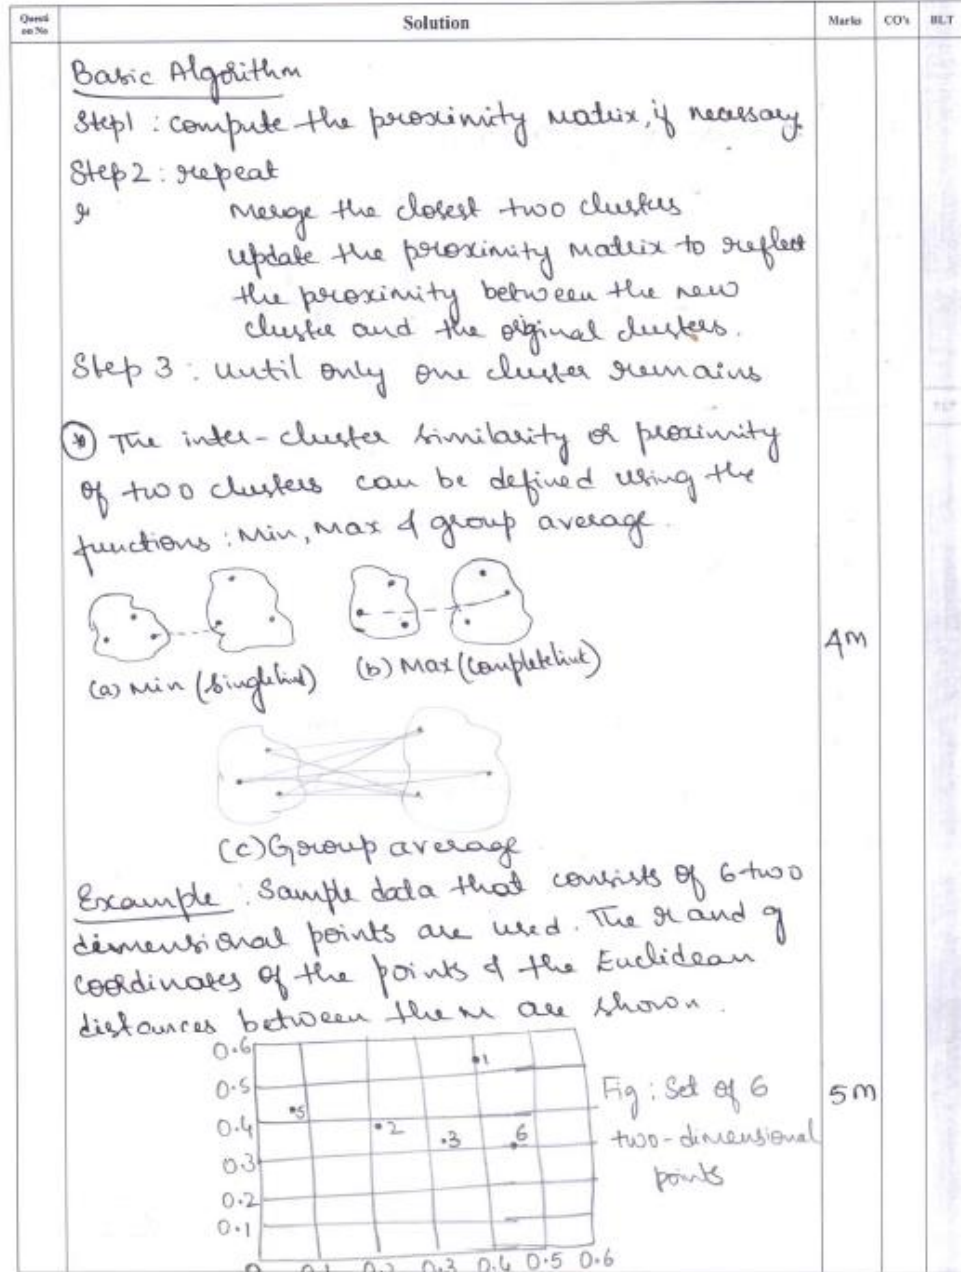 Questi on No
Solution
Marks
CO's
BLT
Basic Algorithm
Step1 : compute the proximity matrix, if necessary.
Step 2 : repeat
Merge the closest two clusters
update the proximity matrix to reflect
the proximity between the new
cluster and the original clusters.
Step 3 : until only one cluster remains
The inter-cluster similarity or proximity
of two clusters can be defined using the
functions : Min, Max & group average.
4M
(a) Min (Singlelink)
(b) Max (Completelink)
(c) Group average
Example : Sample data that consists of 6-two
dimensional points are used. The x and y
coordinates of the points & the Euclidean
distances between them are shown.
0.6
0.5
0.4
0.3
0.2
0.1
1
5
2
3
6
0 0.1 0.2 0.3 0.4 0.5 0.6
Fig : Set of 6
two-dimensional
points
5M